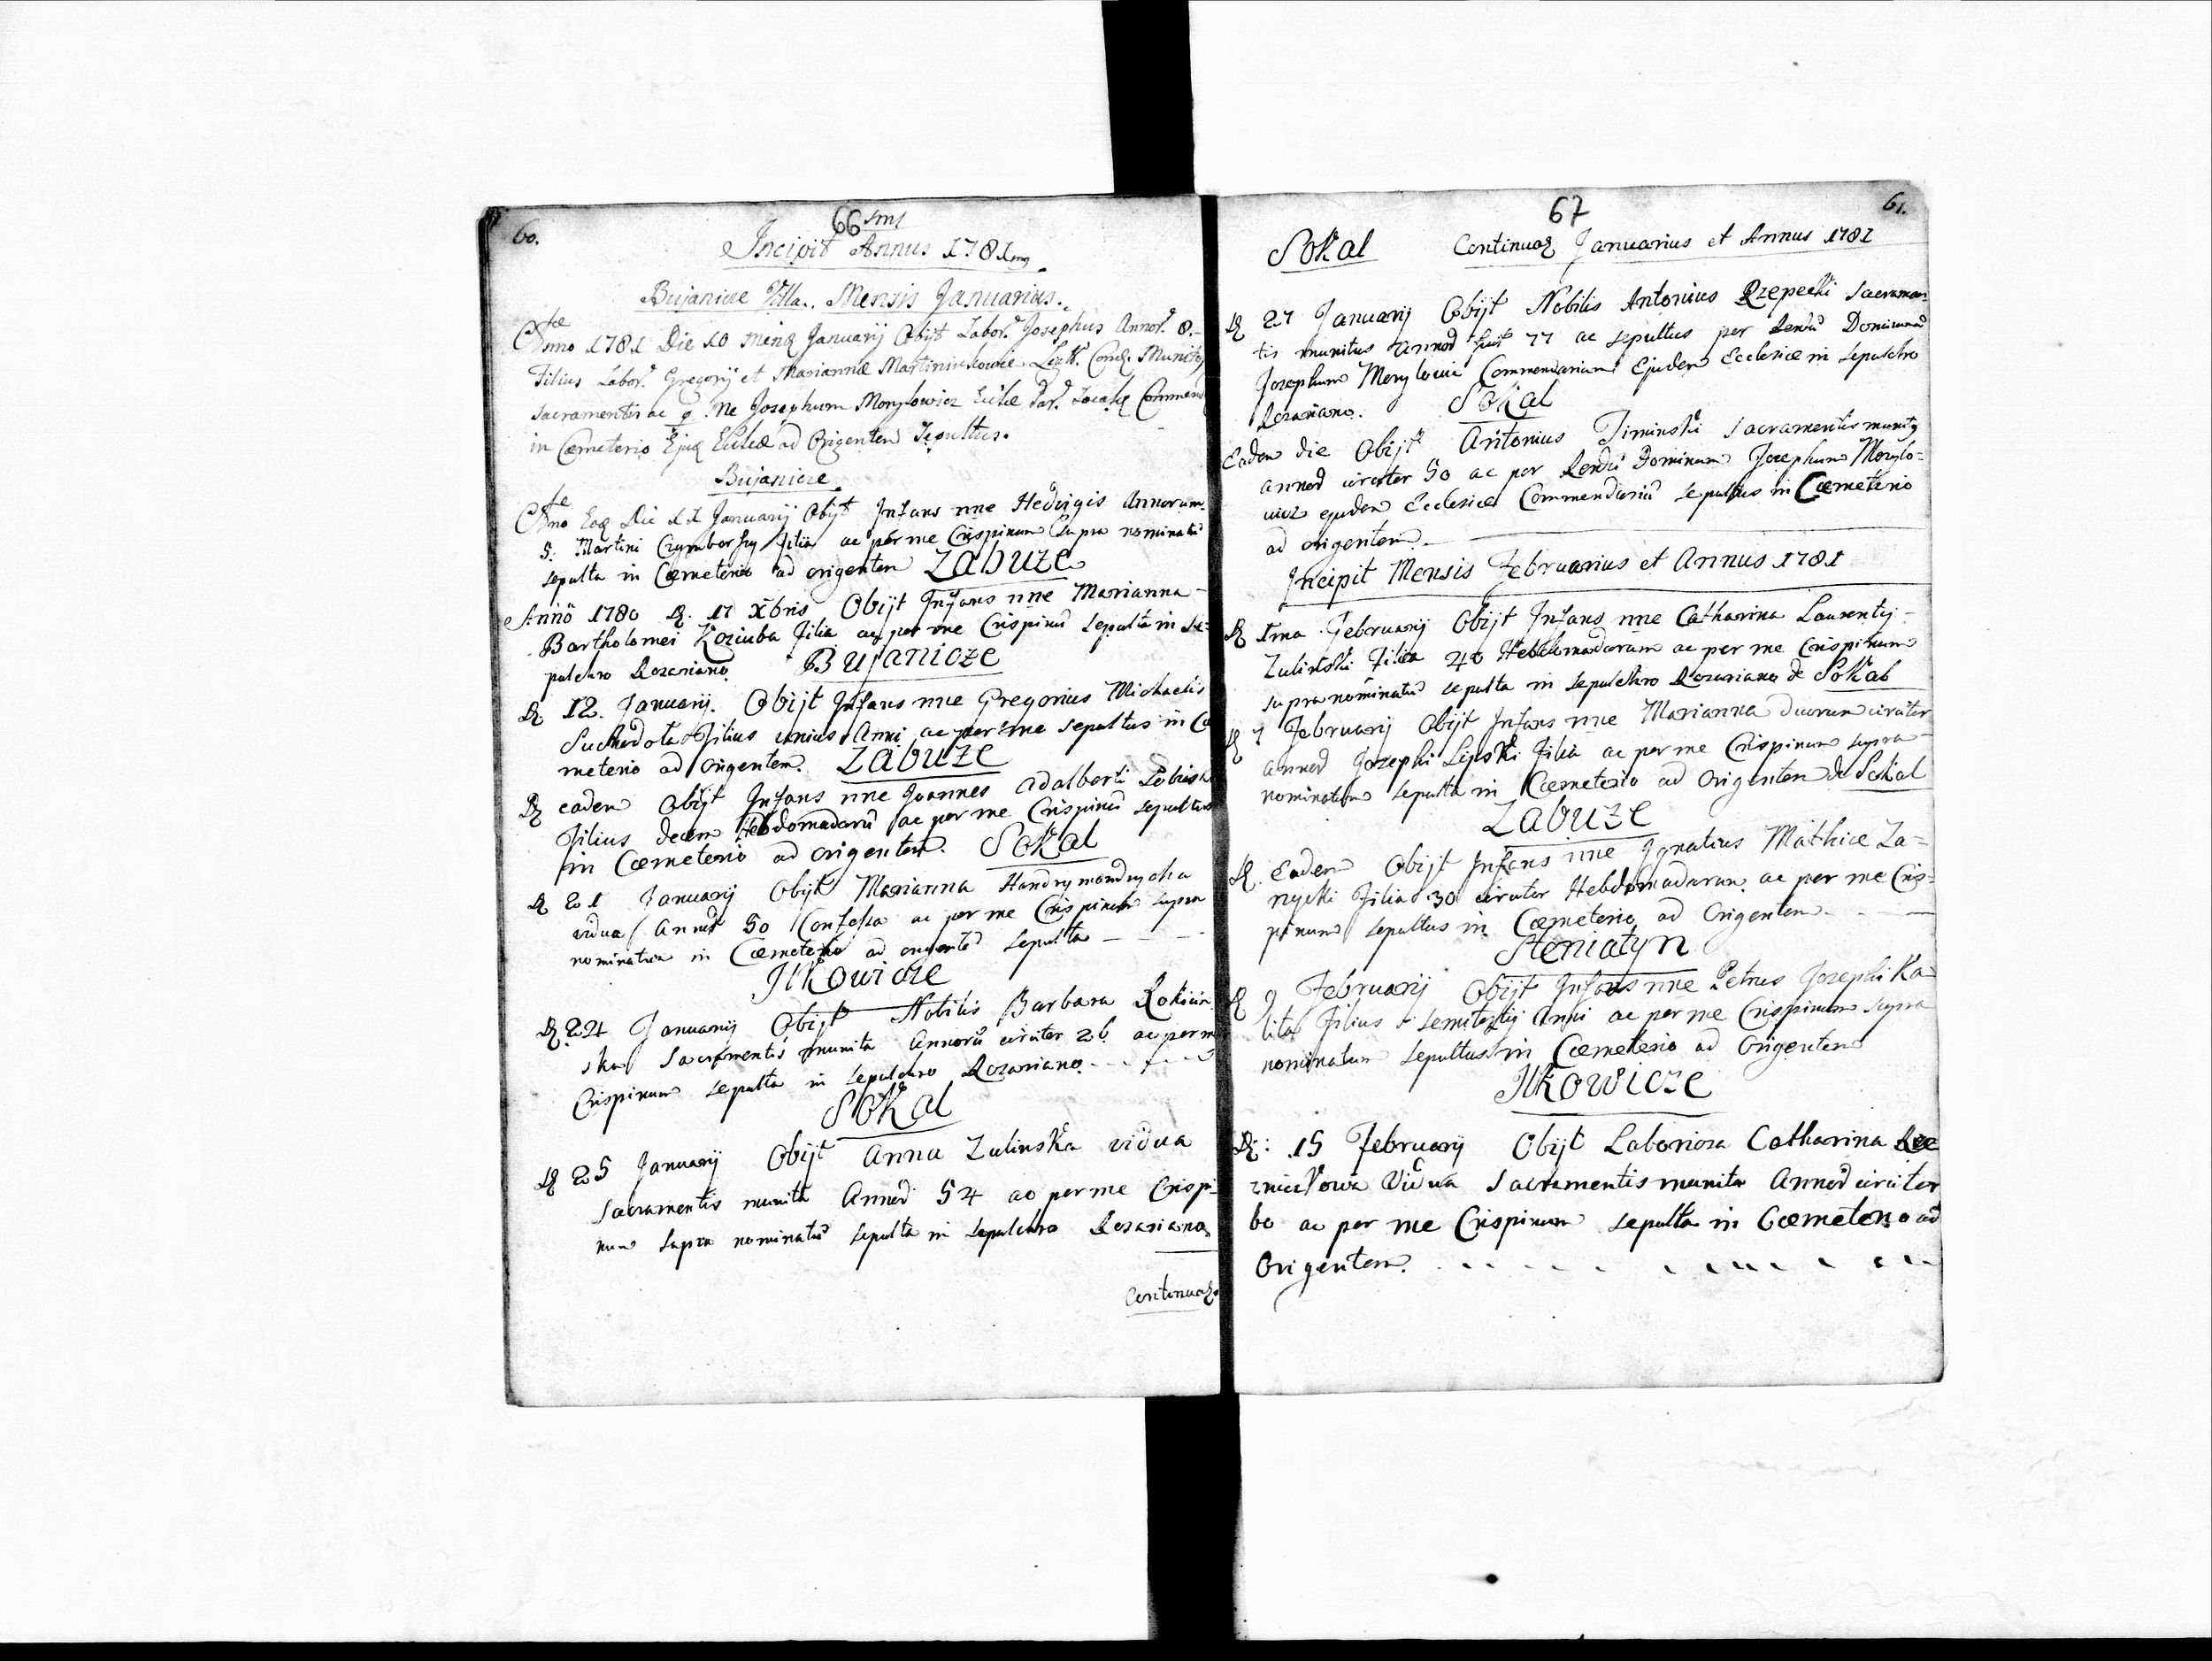 60.
66
Incipit Annus 1781
Bujanicze Villa. Mensis Januarius.
Anno 1781 Die 10 Januarij Obijt Labor. Josephus Annor. 8.
Filius Labor. Gregorij et Mariannæ
Sacramentis ac me Josephum Morylowicz
in Cœmeterio ad Origentem Sepultus.
Bujanicze
Die 11 Januarij Obijt Infans nne Hedvigis Annorum
5. Martini filia ac per me Crispinum Supra nominatū
sepulta in Cœmeterio ad origentem Zabuze
Anno 1780 17 Xbris Obijt Infans nne Marianna
Bartholomei Koziuba Filia ac per me Crispinū Sepulta in Se-
pulchro Rozariano. Bujanicze
12. Januarij. Obijt Infans nne Gregorius Michaelis
Suchedola Filius unius Anni ac per me sepultus in Cœ
meterio ad Origentem. Zabuze
eadem Obijt Infans nne Joannes Adalberti
Filius decem Hebdomadarū ac per me Crispinū sepultus
in Cœmeterio ad origentem. Sokal
21 Januarij Obijt Marianna
vidua 50 Confessa ac per me Crispinum supra
nominatum in Cœmeterio ad origentē sepulta
Ilkowicze
24 Januarij Obijt Nobilis Barbara
ska Sacramentis munita Annorū circiter 26 ac per me
Crispinum sepulta in sepulchro Rozariano
Sokal
25 Januarij Obijt Anna Zulinska vidua
Sacramentis munita 54 ac per me Crispi-
num supra nominatū sepulta in sepulchro Rosariano
67
61.
Sokal Januarius et Annus 1781
27 Januarij Obijt Nobilis Antonius Rzepecki Sacramen-
tis munitus 77 ac sepultus per Dominum
Josephum Morylowicz Commendarium Ejusdem Ecclesiæ in Sepulchro
Rozariano. Sokal
Eadem die Obijt Antonius Siminski Sacramentis
circiter 50 ac per Dominum Josephum Morylo-
wicz ejusdem Ecclesiæ Commendariū sepultus in Cœmeterio
ad origentem.
Incipit Mensis Februarius et Annus 1781
1ma Februarij Obijt Infans nne Catharina Laurentij
Zulinski Filia 40 Hebdomadarum ac per me Crispinum
supra nominatū sepulta in Sepulchro Rozariano de Sokal
7 Februarij Obijt Infans nne Marianna duorum circiter
Josephi Lipski Filia ac per me Crispinum supra
nominatum sepulta in Cœmeterio ad Origentem de Sokal
Zabuze
Eadem Obijt Infans nne Ignatius Mathiæ Za-
nycki Filia 30 circiter Hebdomadarum ac per me Cris-
pinum sepultus in Cœmeterio ad Origentem
Steniatyn
9 Februarij Obijt Infans nne Petrus Josephi Ka
lita Filius Anni ac per me Crispinum supra
nominatum sepultus in Cœmeterio ad Origentem
Ilkowicze
15 Februarij Obijt Laboriosa Catharina
Vidua Sacramentis munita circiter
60 ac per me Crispinum sepulta in Cœmeterio ad
Origentem.